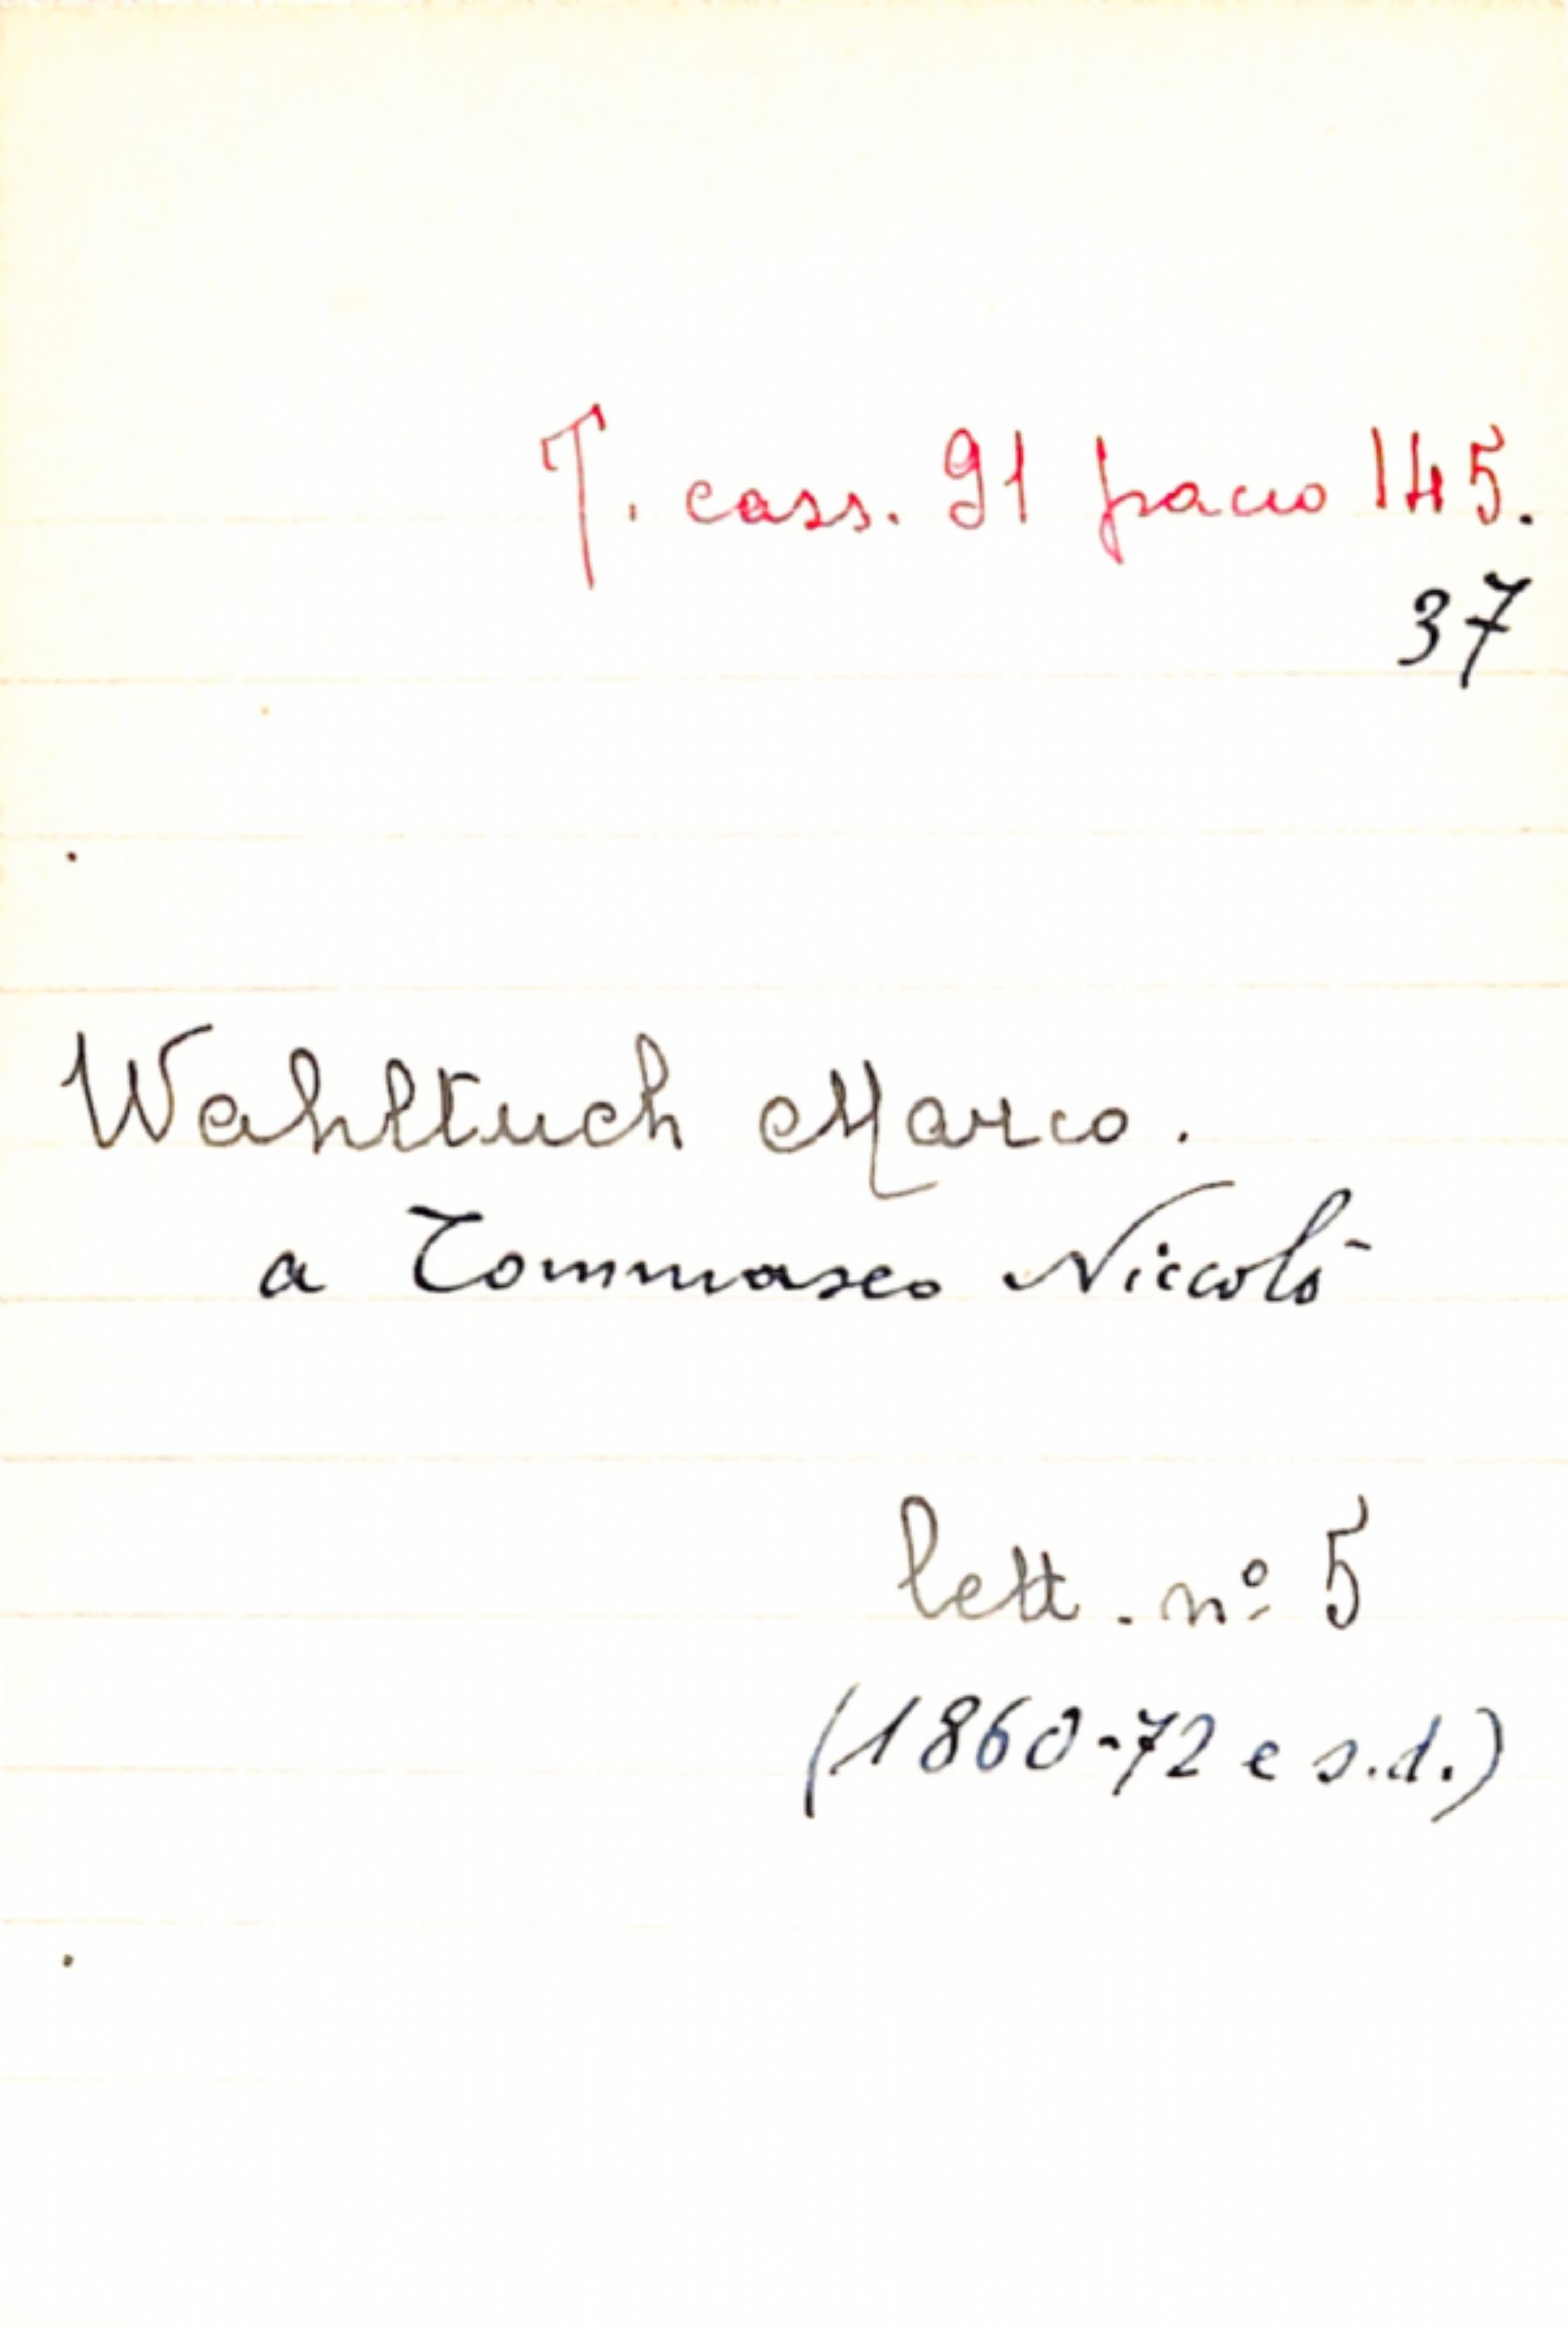 T. cass. 91 pacco 145.
37
Wahltuch Marco.
a Tommaseo Niccolò
lett. nº 5
(1860-72 e s.d.)